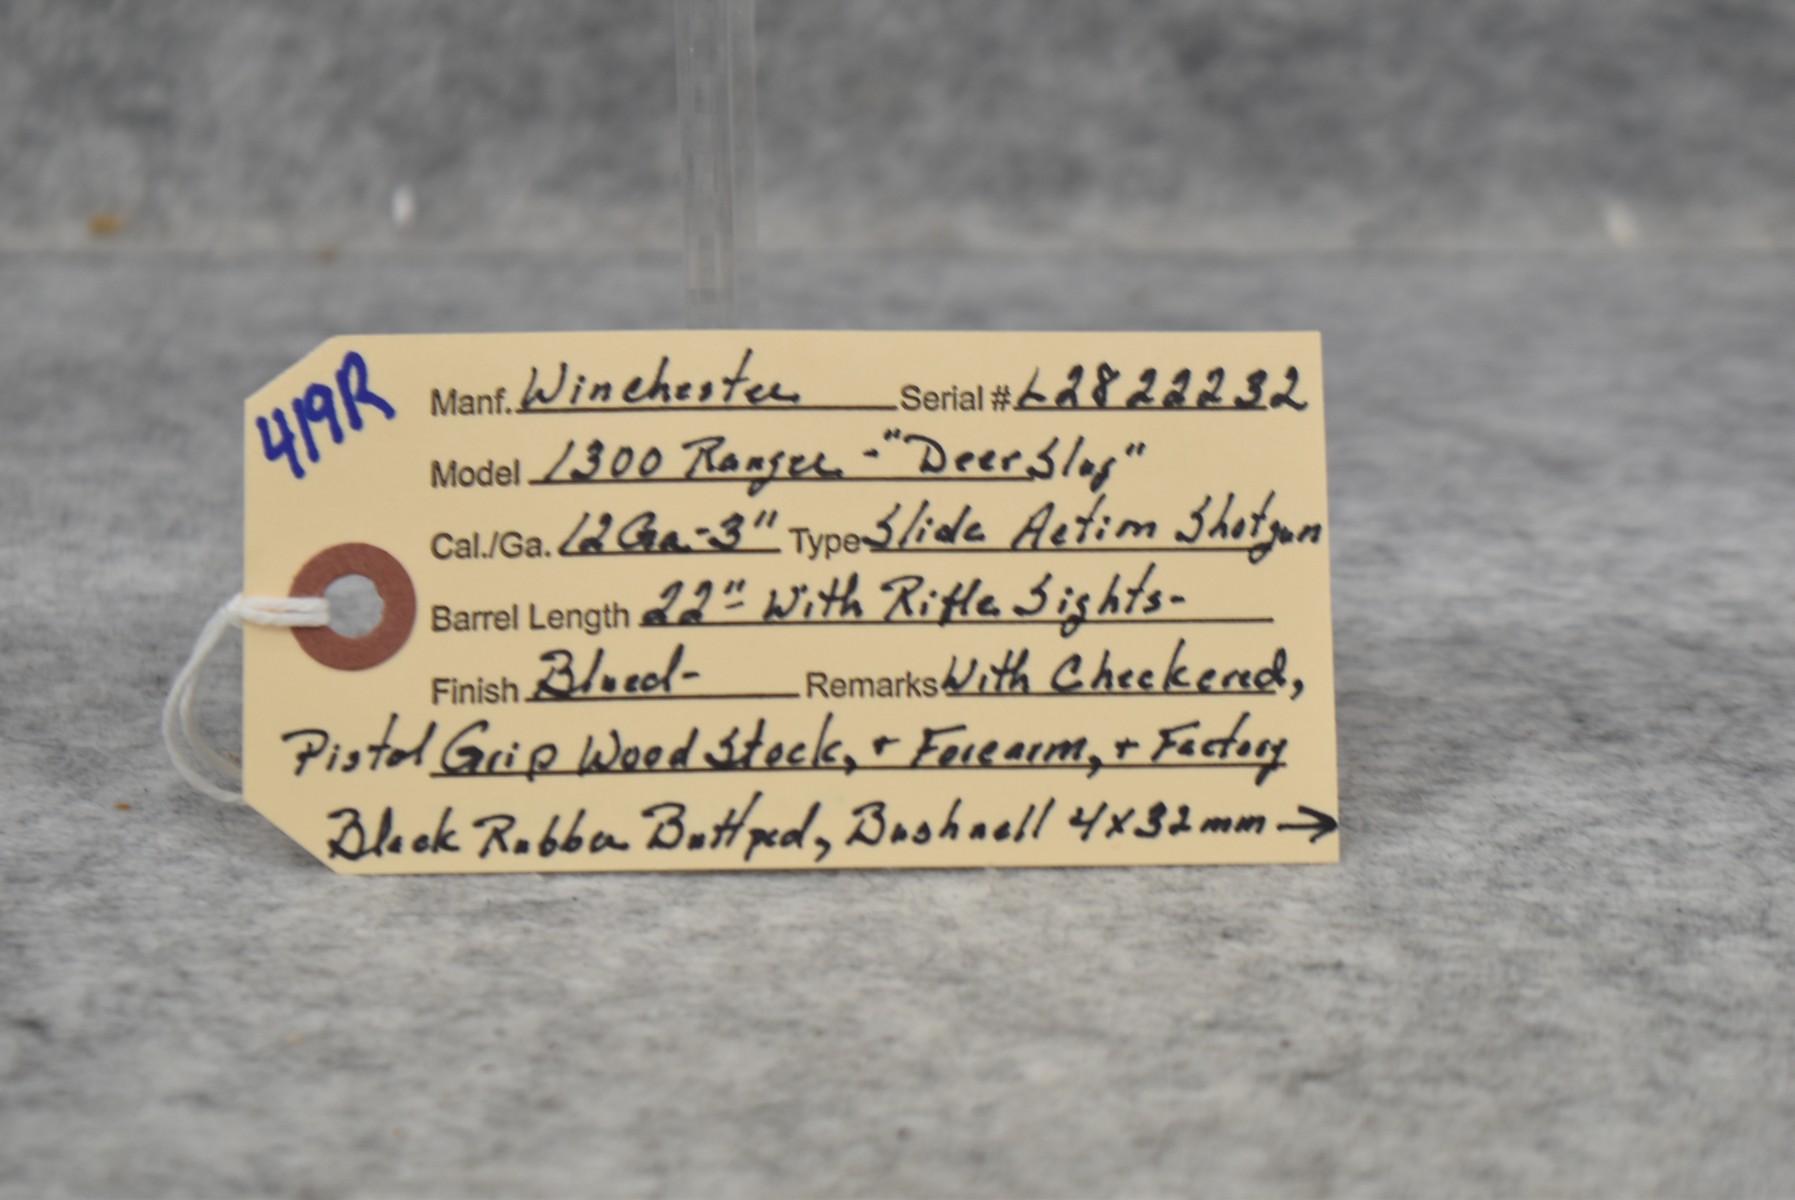 419R
Manf. Winchester Serial # L2822232
Model 1300 Ranger - "Deer Slug"
Cal./Ga. 12 Ga.-3" Type Slide Action Shotgun
Barrel Length 22" With Rifle Sights-
Finish Blued- Remarks With Checkered,
Pistol Grip Wood Stock, + Forearm, + Factory
Black Rubber Buttped, Bushnell 4x32mm →